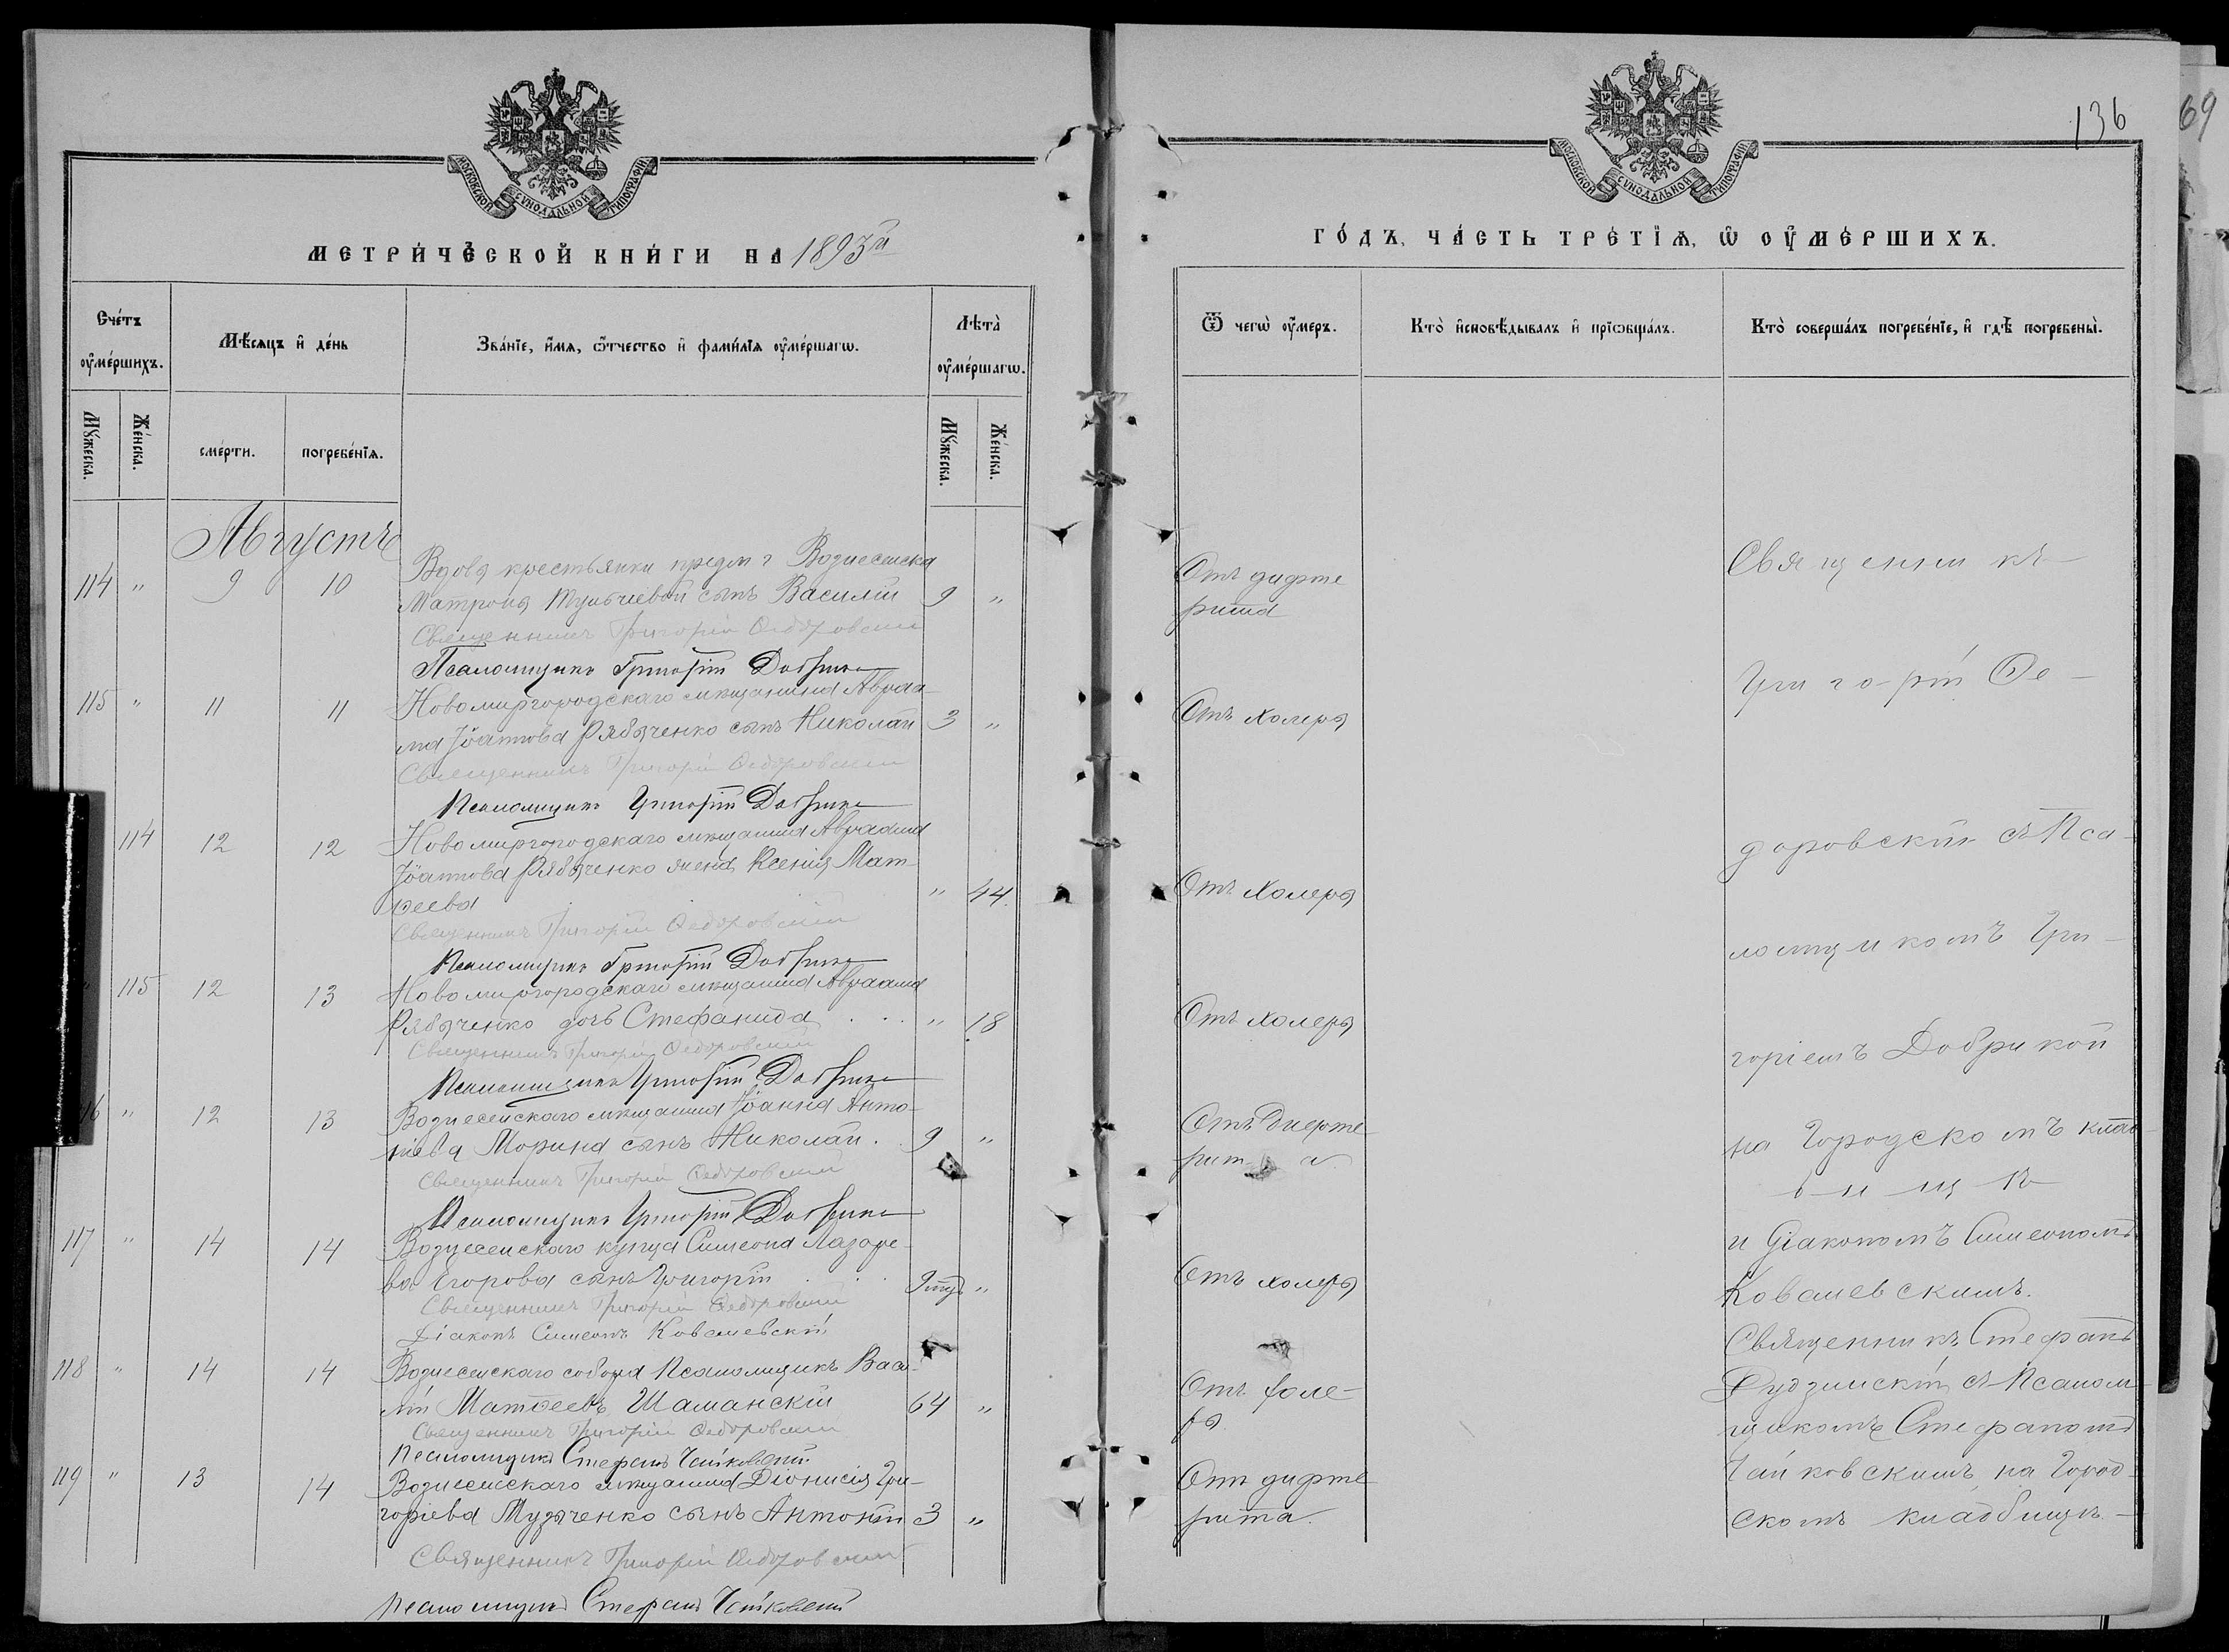 МОСКОВСКОЙ СѴНОДАЛЬНОЙ ТИПОГРАФІИ
МЕТРИ́ЧЕСКОЙ КНИ́ГИ НА 1893й
Сче́тъ ᲂу҆ме́ршихъ.
Мѣ́сяцъ и҆ де́нь
Зва́нїе, и҆́мя, ѻ҆́тчество и҆ фами́лїя ᲂу҆ме́ршагѡ.
Лѣта̀ ᲂу҆ме́ршагѡ.
Мꙋ́жеска.
Же́нска.
сме́рти.
погребе́нїѧ.
Мꙋ́жеска.
Же́нска.
Августъ
114 " 9 10 Вдовы крестьянки предм г Вознесенска
Матроны Тульчевой сынъ Василій 9 "
Священникъ Григорій Ѳедоровскій
Псаломщикъ Григорій Добрика
115 " 11 11 Новомиргородскаго мѣщанина Авраа-
ма Іоаннова Рябченко сынъ Николай 3 "
Священникъ Григорій Ѳедоровскій
Псаломщикъ Григорій Добрика
114 12 12 Новомиргородскаго мѣщанина Авраама
Іоаннова Рябченко жена Ксенія Мат-
ѳеева " 44.
Священникъ Григорій Ѳедоровскій
Псаломщикъ Григорій Добрика
" 115 12 13 Новомиргородскаго мѣщанина Авраама
Рябченко дочь Стефанида . . . " 18
Священникъ Григорій Ѳедоровскій
Псаломщикъ Григорій Добрика
16 " 12 13 Вознесенскаго мѣщанина Іоанна Анто-
ніева Морина сынъ Николай . . 9 "
Священникъ Григорій Ѳедоровскій
Псаломщикъ Григорій Добрика
117 " 14 14 Вознесенскаго купца Симеона Лазаре-
ва Егорова сынъ Григорій . . .  "
Священникъ Григорій Ѳедоровскій
Діаконъ Симеонъ Ковалевскій
118 " 14 14 Вознесенскаго собора Псаломщикъ Васи-
лій Матѳеевъ Шаманскій 64 "
Священникъ Григорій Ѳедоровскій
Псаломщикъ Стефанъ Чайковскій
119 " 13 14 Вознесенскаго мѣщанина Діонисія Гри-
горіева Музыченко сынъ Антоній 3 "
Священникъ Григорій Ѳедоровскій
Псаломщикъ Стефанъ Чайковскій
136
69
МОСКОВСКОЙ СѴНОДАЛЬНОЙ ТИПОГРАФІИ
ГО́ДЪ, ЧА́СТЬ ТРЕ́ТЇѦ, Ѡ҆ ОУ҆МЕ́РШИХЪ.
Ѿ чегѡ̀ ᲂу҆́меръ.
Кто̀ и҆сповѣ́дывалъ и҆ прїѡбща́лъ.
Кто̀ соверша́лъ погребе́нїе, и҆ гдѣ̀ погребены̀.
Отъ дифте
рита
Отъ холеры
Отъ холеры
Отъ холеры
Отъ Дифте
рит а
Отъ холеры
Отъ холе-
ры
Отъ дифте
рита.
Священникъ
Григо-рій Ѳе-
доровскій съ Пса-
ломщикомъ Гри-
горіемъ Добрикой
на Городскомъ клад-
бищѣ
и Діакономъ Симеономъ
Ковалевскимъ.
Священникъ Стефанъ
Рудзинскій съ Псалом-
щикомъ Стефаномъ
Чайковскимъ, на Город-
скомъ кладбищѣ.-